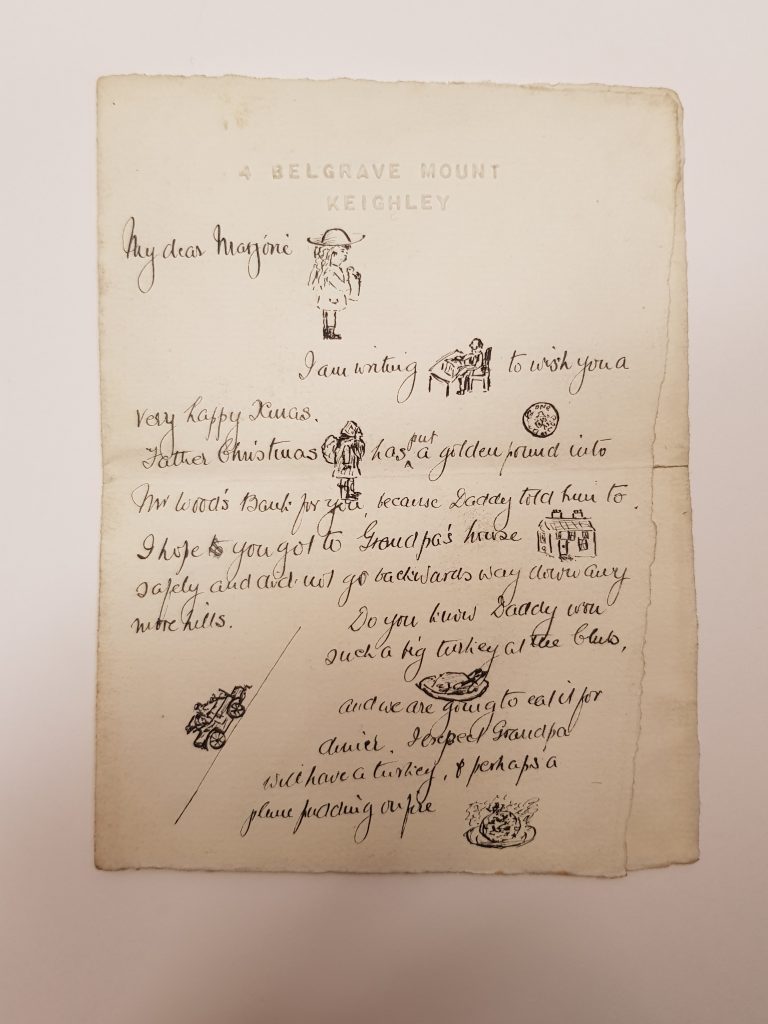 4 BELGRAVE MOUNT
KEIGHLEY
My dear Marjorie
I am writing to wish you a
very happy Xmas.
ONE POUND
put
Father Christmas has ^ a golden pound into
Mr Wood's Bank for you, because Daddy told him to.
I hope you got to Grandpa's house
safely and did not go backwards way down any
more hills.
Do you know Daddy won
such a big turkey at the Club,
and we are going to eat it for
dinner. I expect Grandpa
will have a turkey, & perhaps a
plum pudding on fire